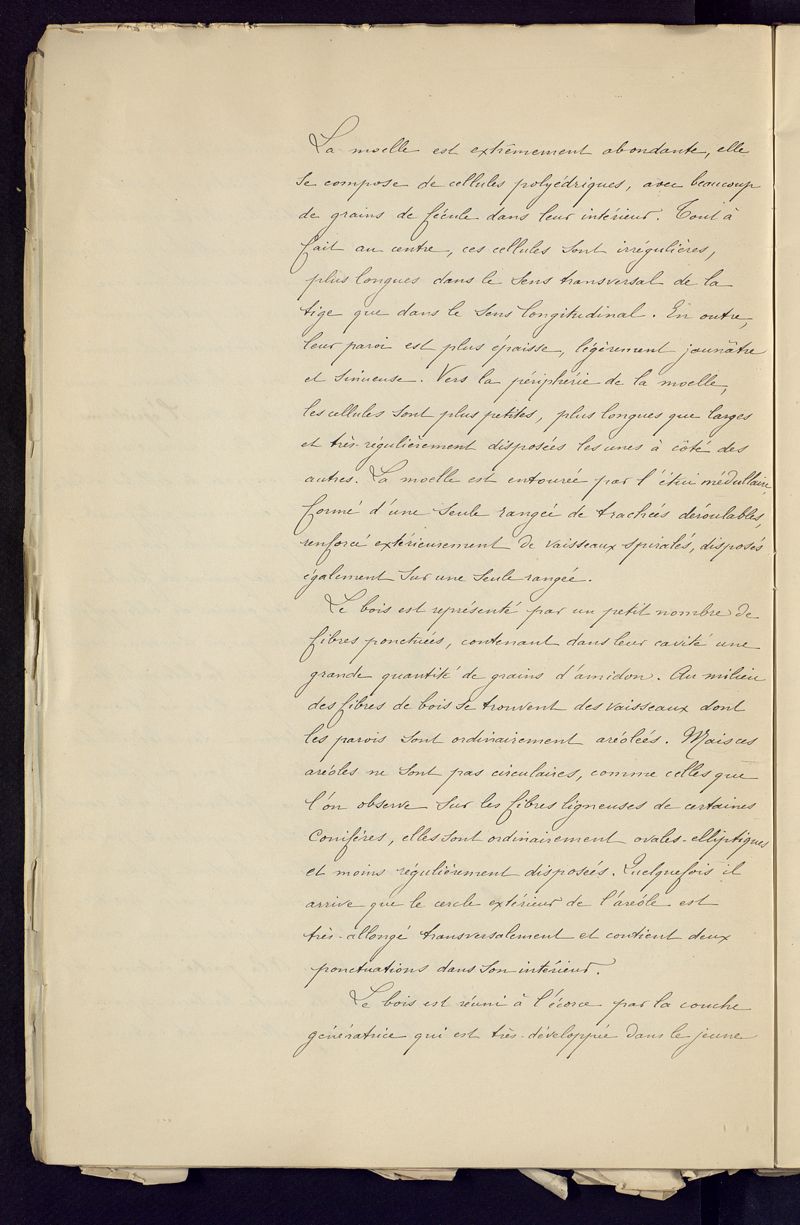 La moelle est extrêmement abondante, elle
se compose de cellules polyédriques, avec beaucoup
de grains de fécule dans leur intérieur. Tout à
fait au centre, ces cellules sont irrégulières,
plus longues dans le sens transversal de la
tige que dans le sens longitudinal. En outre,
leur paroi est plus épaisse, légèrement jaunâtre
et sinueuse. Vers la périphérie de la moelle,
les cellules sont plus petites, plus longues que larges
et très-régulièrement disposées les unes à côté des
autres. La moelle est entourée par l'étui médullaire,
formé d'une seule rangée de trachées déroulables,
renforcé extérieurement de vaisseaux spiralés, disposés
également sur une seule rangée.
Le bois est représenté par un petit nombre de
fibres ponctuées, contenant dans leur cavité une
grande quantité de grains d'amidon. Au milieu
des fibres de bois se trouvent des vaisseaux dont
les parois sont ordinairement aréolées. Mais ces
aréoles ne sont pas circulaires, comme celles que
l'on observe sur les fibres ligneuses de certaines
Conifères, elles sont ordinairement ovales-elliptiques
et moins régulièrement disposées. Quelquefois il
arrive que le cercle extérieur de l'aréole est
très-allongé transversalement et contient deux
ponctuations dans son intérieur.
Le bois est réuni à l'écorce par la couche
génératrice qui est très-développée dans le jeune